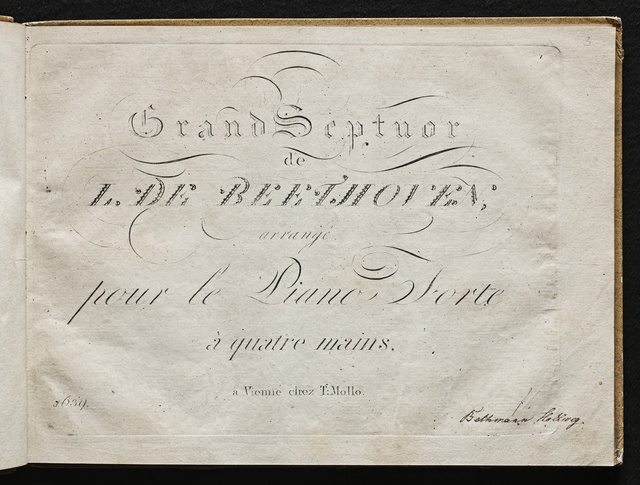 Grand Septuor
de
L. DE BEETHOVEN,
arrangé
pour le Piano Forte
à quatre mains.
a Vienne chez T. Mollo.
Bethmann Hollweg.